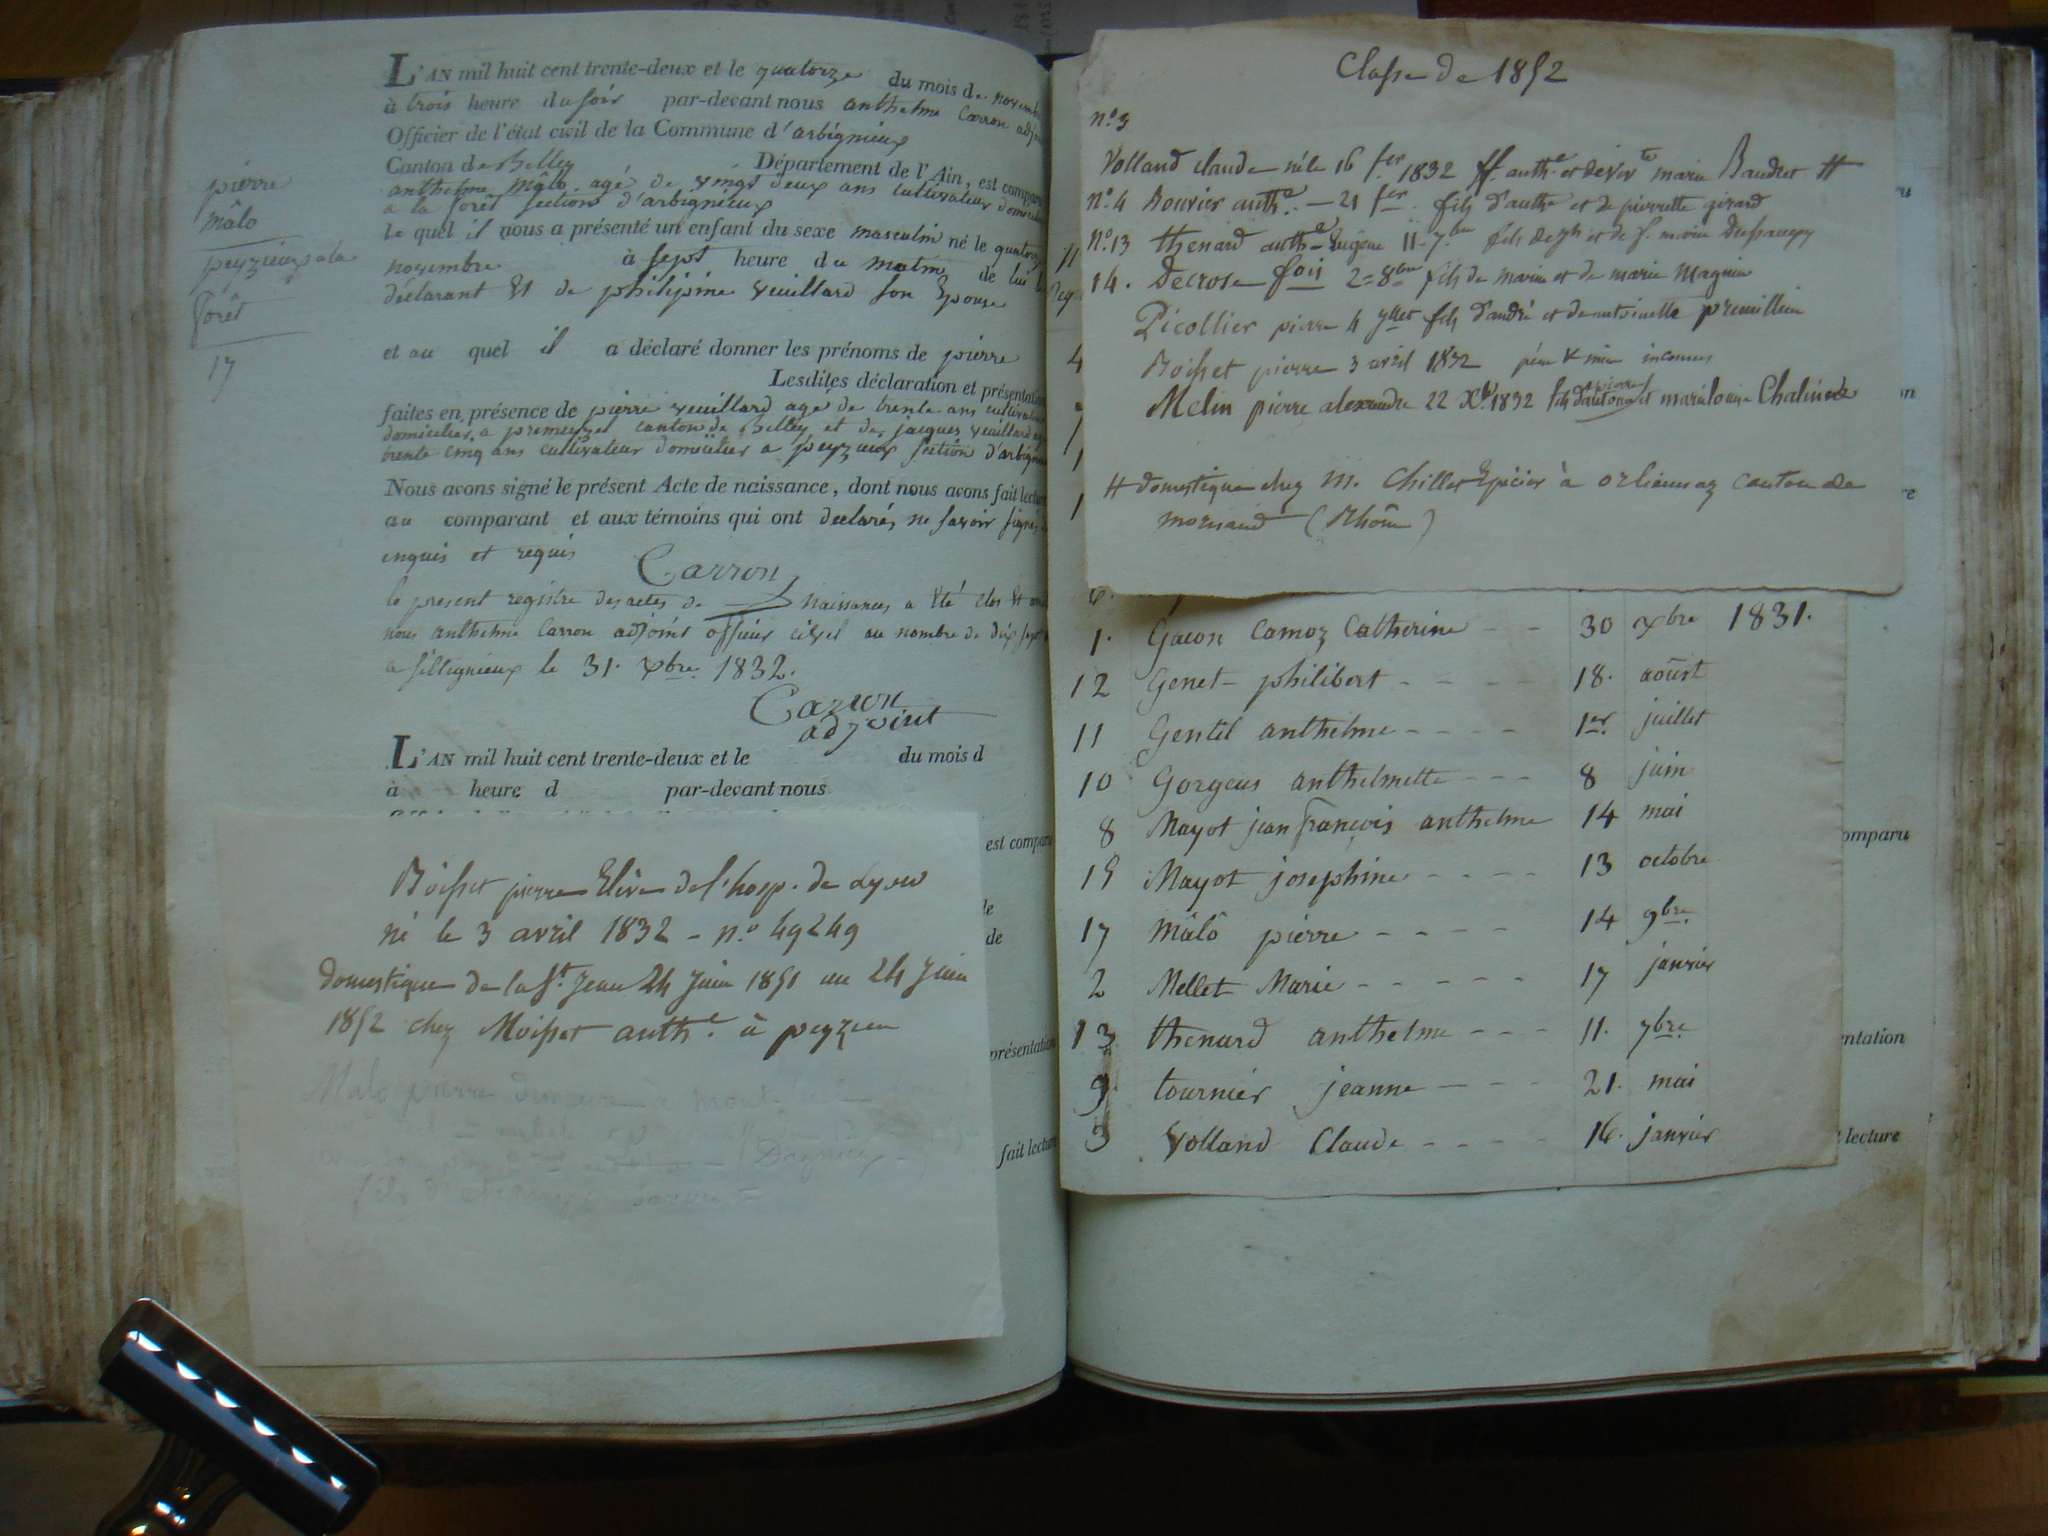 L'AN mil huit cent trente-deux et le quatorze du mois de novem
à trois heure du soir par-devant nous anthelme Carron adj
Officier de l'état civil de la Commune d'arbignieux
Canton de Belley Département de l'Ain, est compar
anthelme mâlo agé de vingt deux ans cultivateur domicilié
a la forêt section d'arbignieux
le quel il nous a présenté un enfant du sexe masculin né le quatorze
novembre à sept heure du matin de lui
déclarant Et de philipine veuillard son Epouse
et au quel il a déclaré donner les prénoms de pierre
Lesdites déclaration et présentation
faites en présence de pierre veuillard agé de trente ans cultivateur
domicilier a premeyzel canton de Belley et de jacques veuillard
trente cinq ans cultivateur domicilier a peyzieux section d'arbignieux
Nous avons signé le présent Acte de naissance, dont nous avons fait lecture
au comparant et aux témoins qui ont declarés ne savoir signer
enquis et requis
Carron
le present registre des actes de naissances a Eté clos Et
nous anthelme Carron adjoint officier civil au nombre de dix sept
le 31. xbre. 1832.
Carron
adjoint
L'AN mil huit cent trente-deux et le du mois d
à heure d par-devant nous
pierre
mâlo
peyzieux a la
forêt
17
est comparu
le
de
présentation
fait lecture
Boisset pierre Elève de l'hosp. de Lyon
né le 3 avril 1832 - n.o 49249
domestique de la St Jean 24 Juin 1851 au 24 Juin
1852 chez Moisset anthe. à peyzieu
Malo pierre
Classe de 1852
no. 3
Volland claude né le 16 fer 1832 ff. anthe. et de marie Baudret #
No. 4 Bouvier anthe. — 21 fer. fils d'anthe et de pierrette girard
No. 13 thenard anthe Eugène 11. 7.bre fils de et de marie
14. Decrose fois 2 = 8bre fils de marin et de marie Magnin
Picollier pierre 4 yllet fils d'andré et d'antoinette premillieu
Boisset pierre 3 avril 1832 père & mère inconnus
Melin pierre alexandre 22 Xbre 1832 fils d'antoine et marie louise Chalinde
pierre
# domestique chez M. Chillet Epicier à orliennaz canton de
mornand (Rhône)
1. Gacon Camoz Catherine - - 30 xbre 1831.
12 Genet philibert - - - - 18. aoüst
11 Gentil anthelme - - - - 1er. juillet
10 Gorgeus anthelmette - - - 8 juin
8 Mayot jean françois anthelme 14 mai
15 Mayot josephine - - - - 13 octobre
17 mâlô pierre - - - - 14 9bre.
2 Mellet Marie - - - - - 17 janvier
13 thenard anthelme - - - 11. 7bre
9. tournier jeanne - - - 21. mai
3 Volland Claude - - - - 16. janvier
omparu
ntation
lecture